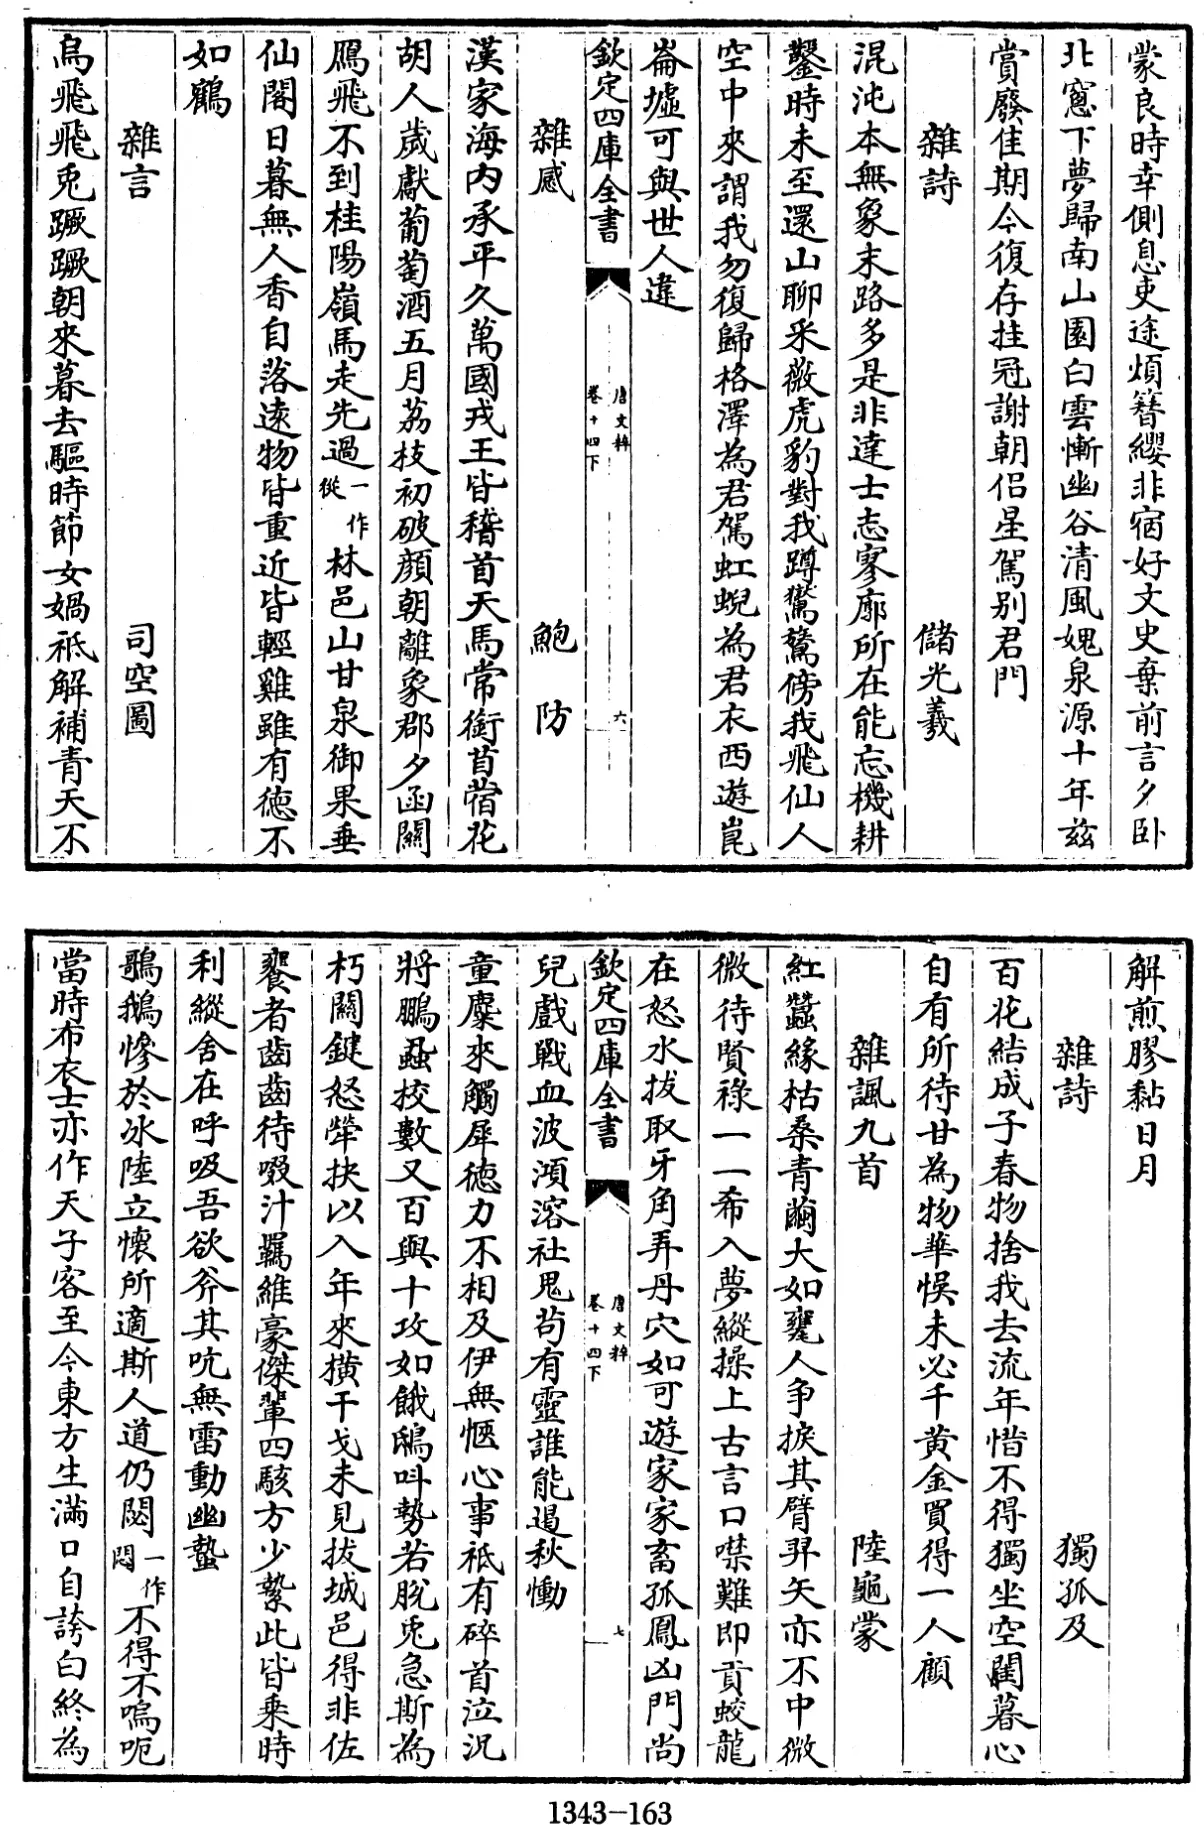 蒙良時幸側息吏途煩簪纓非宿好文史棄前言夕卧
北窻下夢歸南山園白雲慚幽谷清風媿泉源十年兹
賞廢佳期今復存挂冠謝朝侣星駕别君門
雜詩 儲光羲
混沌本無象末路多是非達士志寥廓所在能忘機耕
鑿時未至還山聊采薇虎豹對我蹲鸑鷟傍我飛仙人
空中來謂我勿復歸格澤為君駕虹蜺為君衣西遊崑
崙墟可與世人違
欽定四庫全書 唐文粹 卷十四下 六
雜感 鮑防
漢家海内承平久萬國戎王皆稽首天馬常銜苜蓿花
胡人歲獻葡萄酒五月荔枝初破顔朝離象郡夕函關
鴈飛不到桂陽嶺馬走先過一作從林邑山甘泉御果垂
仙閣日暮無人香自落逺物皆重近皆輕雞雖有徳不
如鶴
雜言 司空圖
烏飛飛兎蹶蹶朝來暮去驅時節女媧祗解補青天不
解煎膠黏日月
雜詩 獨孤及
百花結成子春物捨我去流年惜不得獨坐空閨暮心
自有所待甘為物華悞未必千黄金買得一人顧
雜諷九首 陸龜蒙
紅蠶緣枯桑青繭大如甕人争捩其臂羿矢亦不中微
微待賢祿一一希入夢縱操上古言口噤難即貢蛟龍
在怒水拔取牙角弄丹穴如可遊家家畜孤鳳凶門尚
欽定四庫全書 唐文粹 卷十四下 七
兒戲戰血波澒溶社鬼茍有靈誰能遏秋慟
童麋來觸犀徳力不相及伊無愜心事祗有碎首泣況
將鵬蝨校數又百與十攻如餓鴟叫勢若脱兎急斯為
朽關鍵怒犖抉以入年來横干戈未見拔城邑得非佐
饔者齒齒待啜汁羈維豪傑輩四駭方少縶此皆乘時
利縱舍在呼吸吾欲斧其吭無雷動幽蟄
鶤鵝慘於冰陸立懷所適斯人道仍閟一作悶不得不嗚呃
當時布衣士亦作天子客至今東方生滿口自誇白終為
1343-163